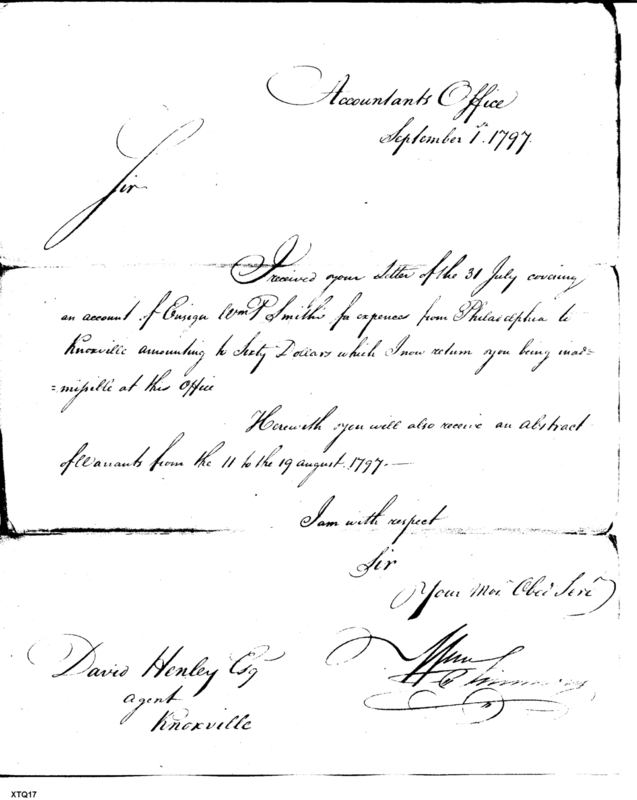 Accountants Office
September 1st. 1797.
Sir
I received your Letter of the 31 July covering
an account of Ensign Wm P Smiths for expences from Philadelphia to
Knoxville amounting to Sixty Dollars which I now return you being inad=
=missible at this Office
Herewith you will also receive an abstract
of Warrants from the 11 to the 19 august 1797.—
I am with respect
Sir
Your Mot Obed Servt
Wm Simmons
David Henley Esq
agent
Knoxville
XTQ17